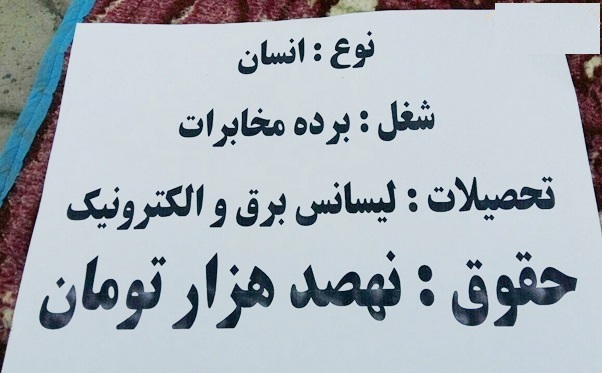 نوع : انسان
شغل : برده مخابرات
تحصیلات : لیسانس برق و الکترونیک
حقوق : نهصد هزار تومان